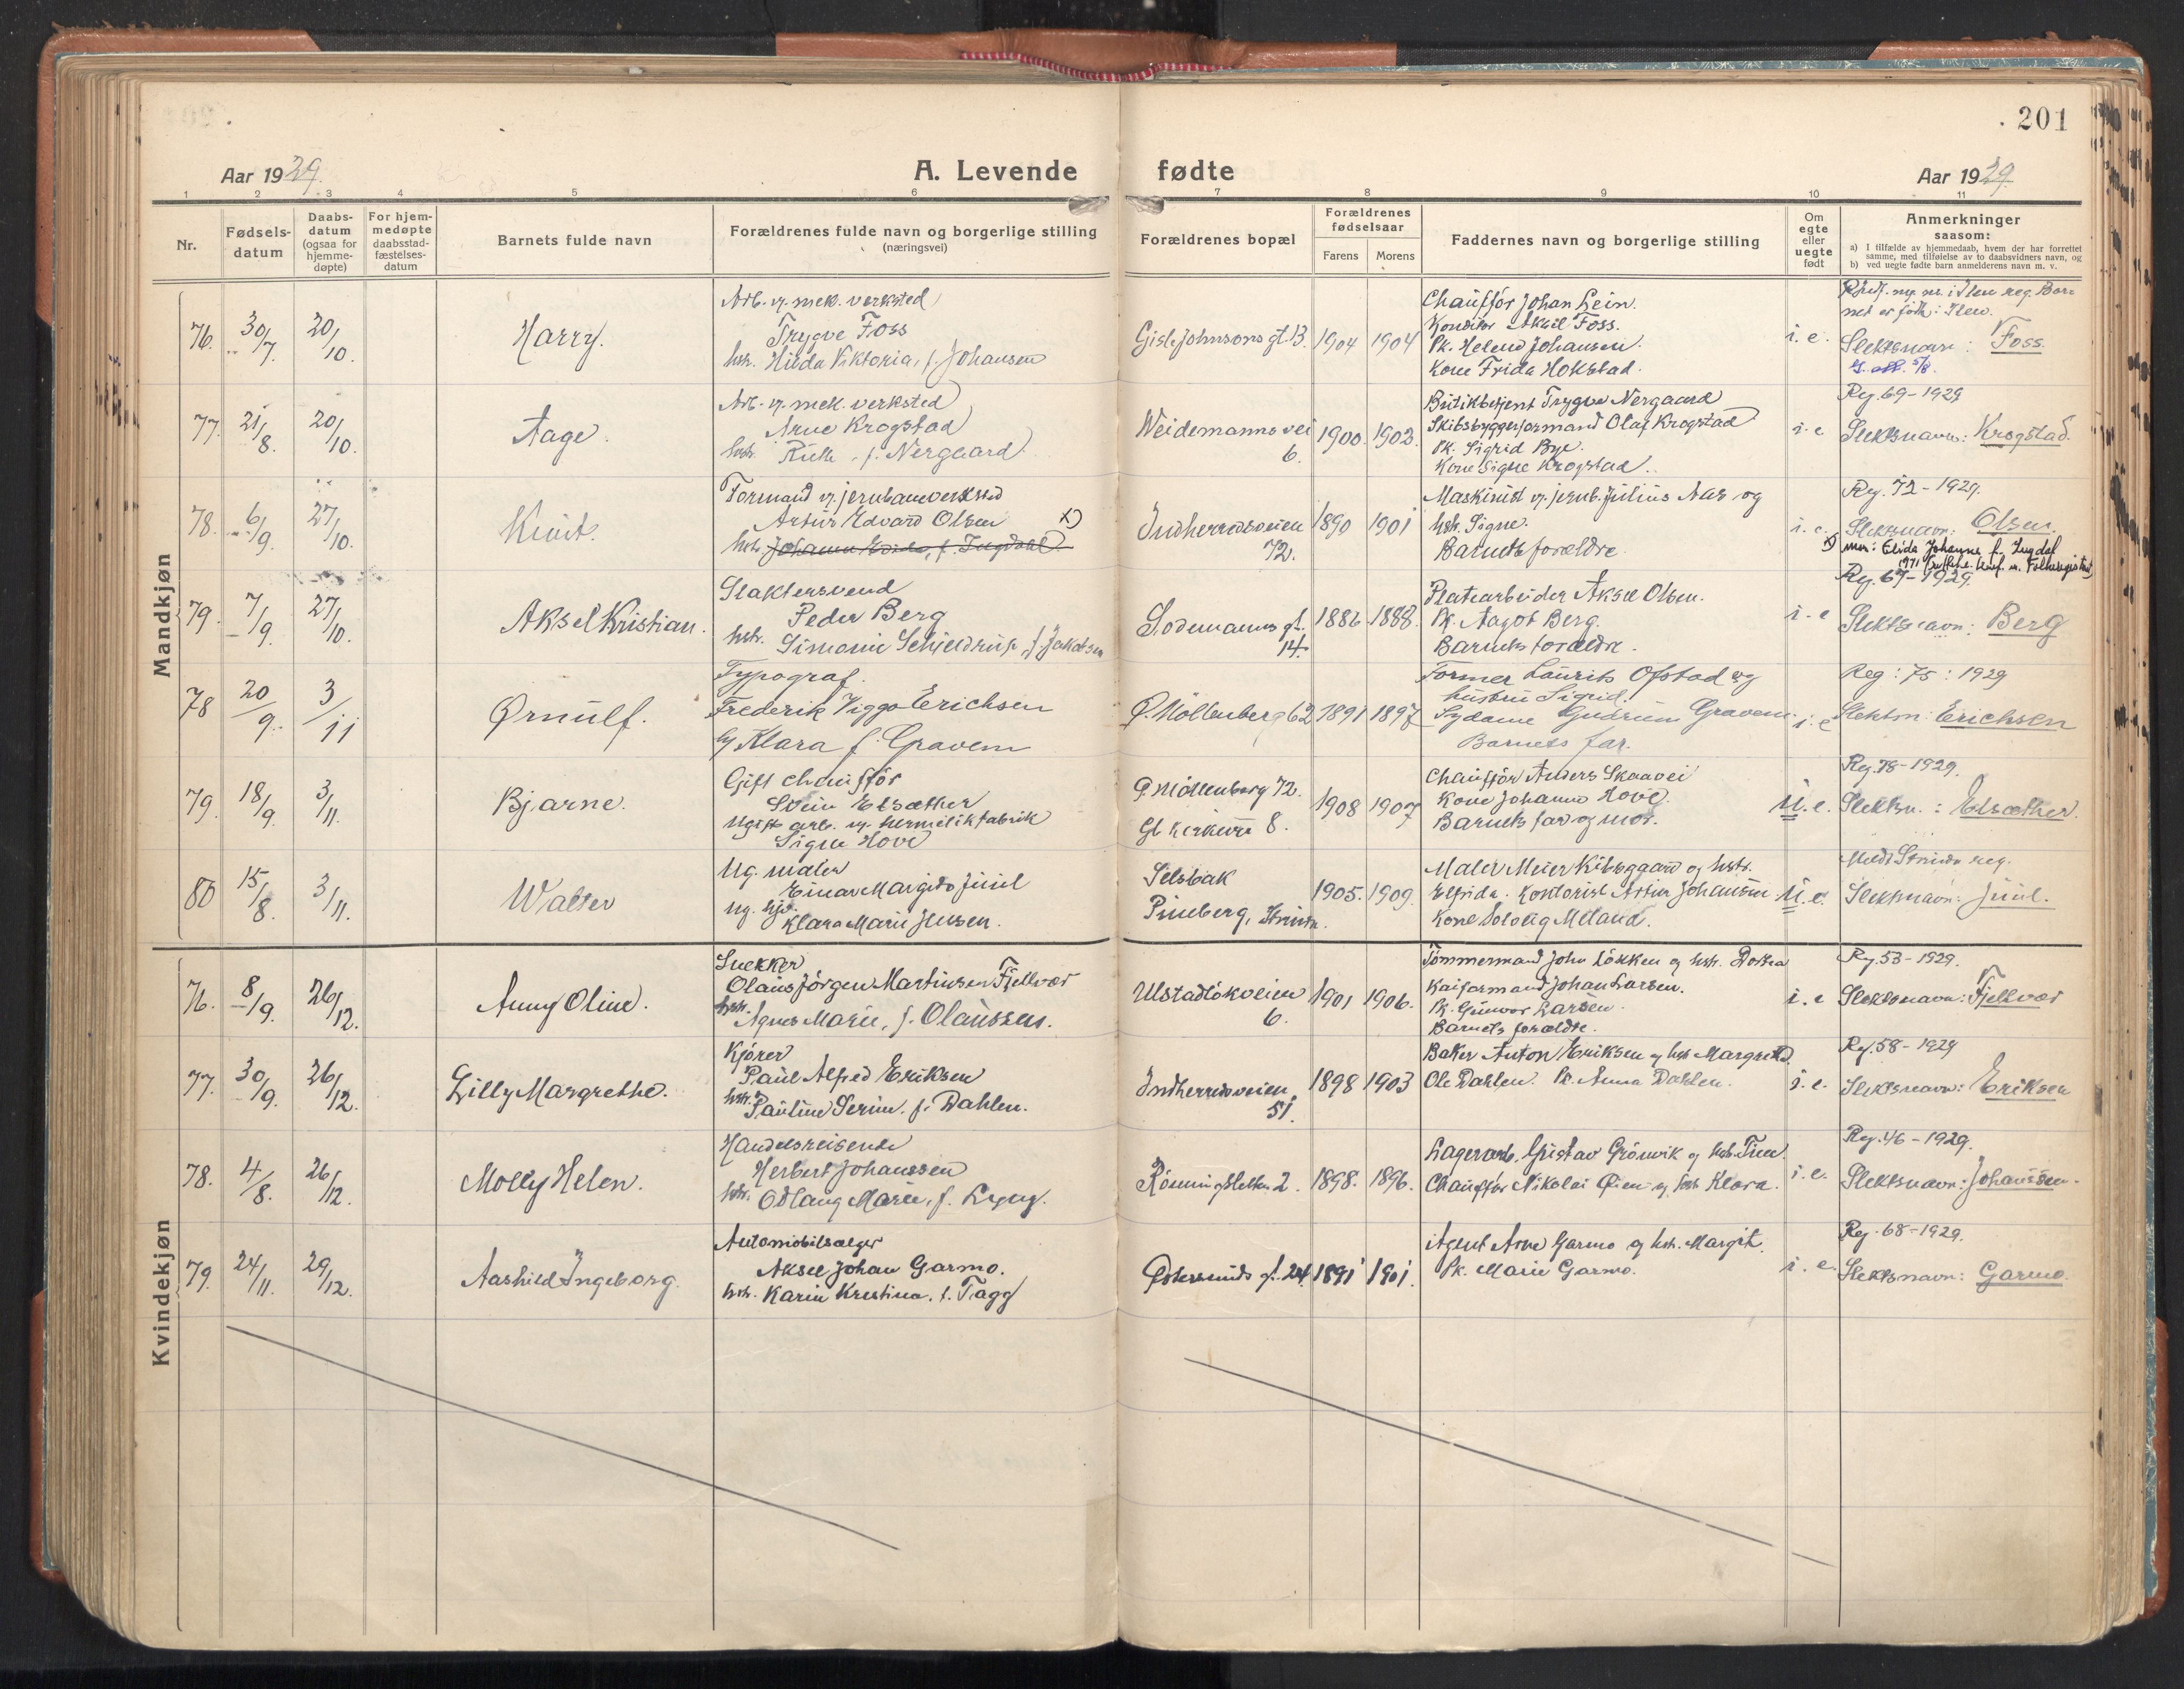 201
Aar 1929.
A. Levende fødte
Aar 1929
1 2 3 4 5 6 7 8 9 10 11
Nr.
Fødsels-
datum
Daabs-
datum
(ogsaa for
hjemme-
døpte)
For hjem-
medøpte
daabsstad-
fæstelses-
datum
Barnets fulde navn
Forældrenes fulde navn og borgerlige stilling
(næringsvei)
Forældrenes bopæl
Forældrenes
fødselsaar
Farens Morens
Faddernes navn og borgerlige stilling
Om
egte
eller
uegte
født
Anmerkninger
saasom:
a) I tilfælde av hjemmedaab, hvem der har forrettet
samme, med tilføielse av to daabsvidners navn, og
b) ved uegte fødte barn anmelderens navn m. v.
Mandkjøn
76. 30/7. 20/10.
Harry.
Arb. v. mek. verksted
Trygve Foss
hstr. Hilda Viktoria, f. Johansen
Gisle Johnsons gt. 13. 1904 1904
Chauffør Johan Lein.
Konditor Aksil Foss.
Pk. Helene Johansen.
Kone Frida Hokstad.
i. e.
i Ilen reg. Bar-
net er født i Ilen.
Slektsnavn: Foss.
77. 21/8. 20/10.
Aage.
Arb. v. mek. verksted
Arne Krogstad
hstr. Ruth, f. Nergaard.
Weidemannsvei
6.
1900. 1902.
Butikbetjent Trygve Nergaard
Skibsbyggerformand Olaf Krogstad
Pk. Sigrid Bye.
Kone Signe Krogstad.
i. e
Reg. 69-1929
Slektsnavn: Krogstad.
78. 6/9. 27/10.
Knut.
Formand v. jernbaneverksted
Artur Edvard Olsen x)
hstr. Johanna Elida, f. Ingdahl.
Indherredsveien
72.
1890 1901
Maskinist v. jernb. Julius Aas og
hstr. Signe.
Barnets forældre.
i. e.
Reg. 72-1929.
Slektsnavn: Olsen.
x) mor: Elida Johanne f. Ingdal
Folkeregistret
79. 7/9. 27/10.
Aksel Kristian.
Slaktersvend
Peder Berg
hstr. Simonie Schjeldrup, f. Jakobsen
Sodemanns gt.
14.
1886 1888.
Platearbeider Aksel Olsen.
Pk. Aagot Berg.
Barnets forældre.
i. e
Reg. 67-1929.
Slektsnavn: Berg
78 20/9. 3/11
Ørnulf.
Typograf.
Frederik Viggo Erichsen
og Klara f. Gravem
Ø. Möllenberg 62 1891 1897
Former Laurits Ofstad og
hustru Sigrid.
Sydame Gudrun Gravem.
Barnets far.
i. e
Reg: 75: 1929
Slektsn: Erichsen
79. 18/9. 3/11.
Bjarne.
Gift chauffør
Svein Elsæther
Ugift arb. v. hermetikfabrik
Signe Hove
Ø. Möllenberg 72.
8.
1908 1907
Chauffør Anders Skaavei
Kone Johanne Hove.
Barnets far og mor.
u. e.
Reg. 78-1929.
Slektsn.: Elsæther.
80 15/8. 3/11.
Walter
Ug. maler
Einar Margido Juul
Ug. hjv.
Klara Marie Jensen.
Selsbak
Pineberg, Strinda.
1905. 1909.
Maler Meier Kibsgaard og hstr.
Elfrida. Kontorist Artur Johansen
Kone Solveig Metland.
u. e.
Meldt Strinda reg.
Slektsnavn: Juul.
Kvindekjøn
76. 8/9. 26/12.
Anny Oline.
Snekker
Olaus Jörgen Martinsen Fjellvær
hstr. Agnes Marie, f. Olaussen.
Ulstadlökveien
6.
1901 1906.
Tømmermand John Løkken og hstr. Dorthea
Kaiformand Johan Larsen.
Pk. Gunvor Larsen.
Barnets forældre.
i. e
Reg. 53-1929.
Slektsnavn: Fjellvær
77. 30/9. 26/12.
Lilly Margrethe.
Kjører
Paul Alfred Eriksen
hstr. Pauline Serine, f. Dahlen.
Indherredsveien
51.
1898 1903
Baker Anton Eriksen og hstr. Margrethe.
Ole Dahlen. Pk. Anna Dahlen.
i. e.
Reg. 58-1929
Slektsnavn: Eriksen
78. 4/8. 26/12.
Molly Helen.
Handelsreisende
Herbert Johanssen
hstr. Odlaug Marie, f. Lyng.
Rønningsletten 2. 1898. 1896.
Lagerarb. Gustav Grönvik og hstr. Tine.
Chauffør Nikolai Øien og hstr. Klara.
i. e.
Reg. 46-1929.
Slektsnavn: Johanssen.
79. 24/11. 29/12.
Aashild Ingeborg.
Automobilsælger
Aksel Johan Garmo.
hstr. Karin Kristina, f. Tagg
Østersunds gt. 24. 1891 1901.
Agent Arne Garmo og hstr. Margit.
Pk. Marie Garmo.
i. e.
Reg. 68-1929.
Slektsnavn: Garmo.